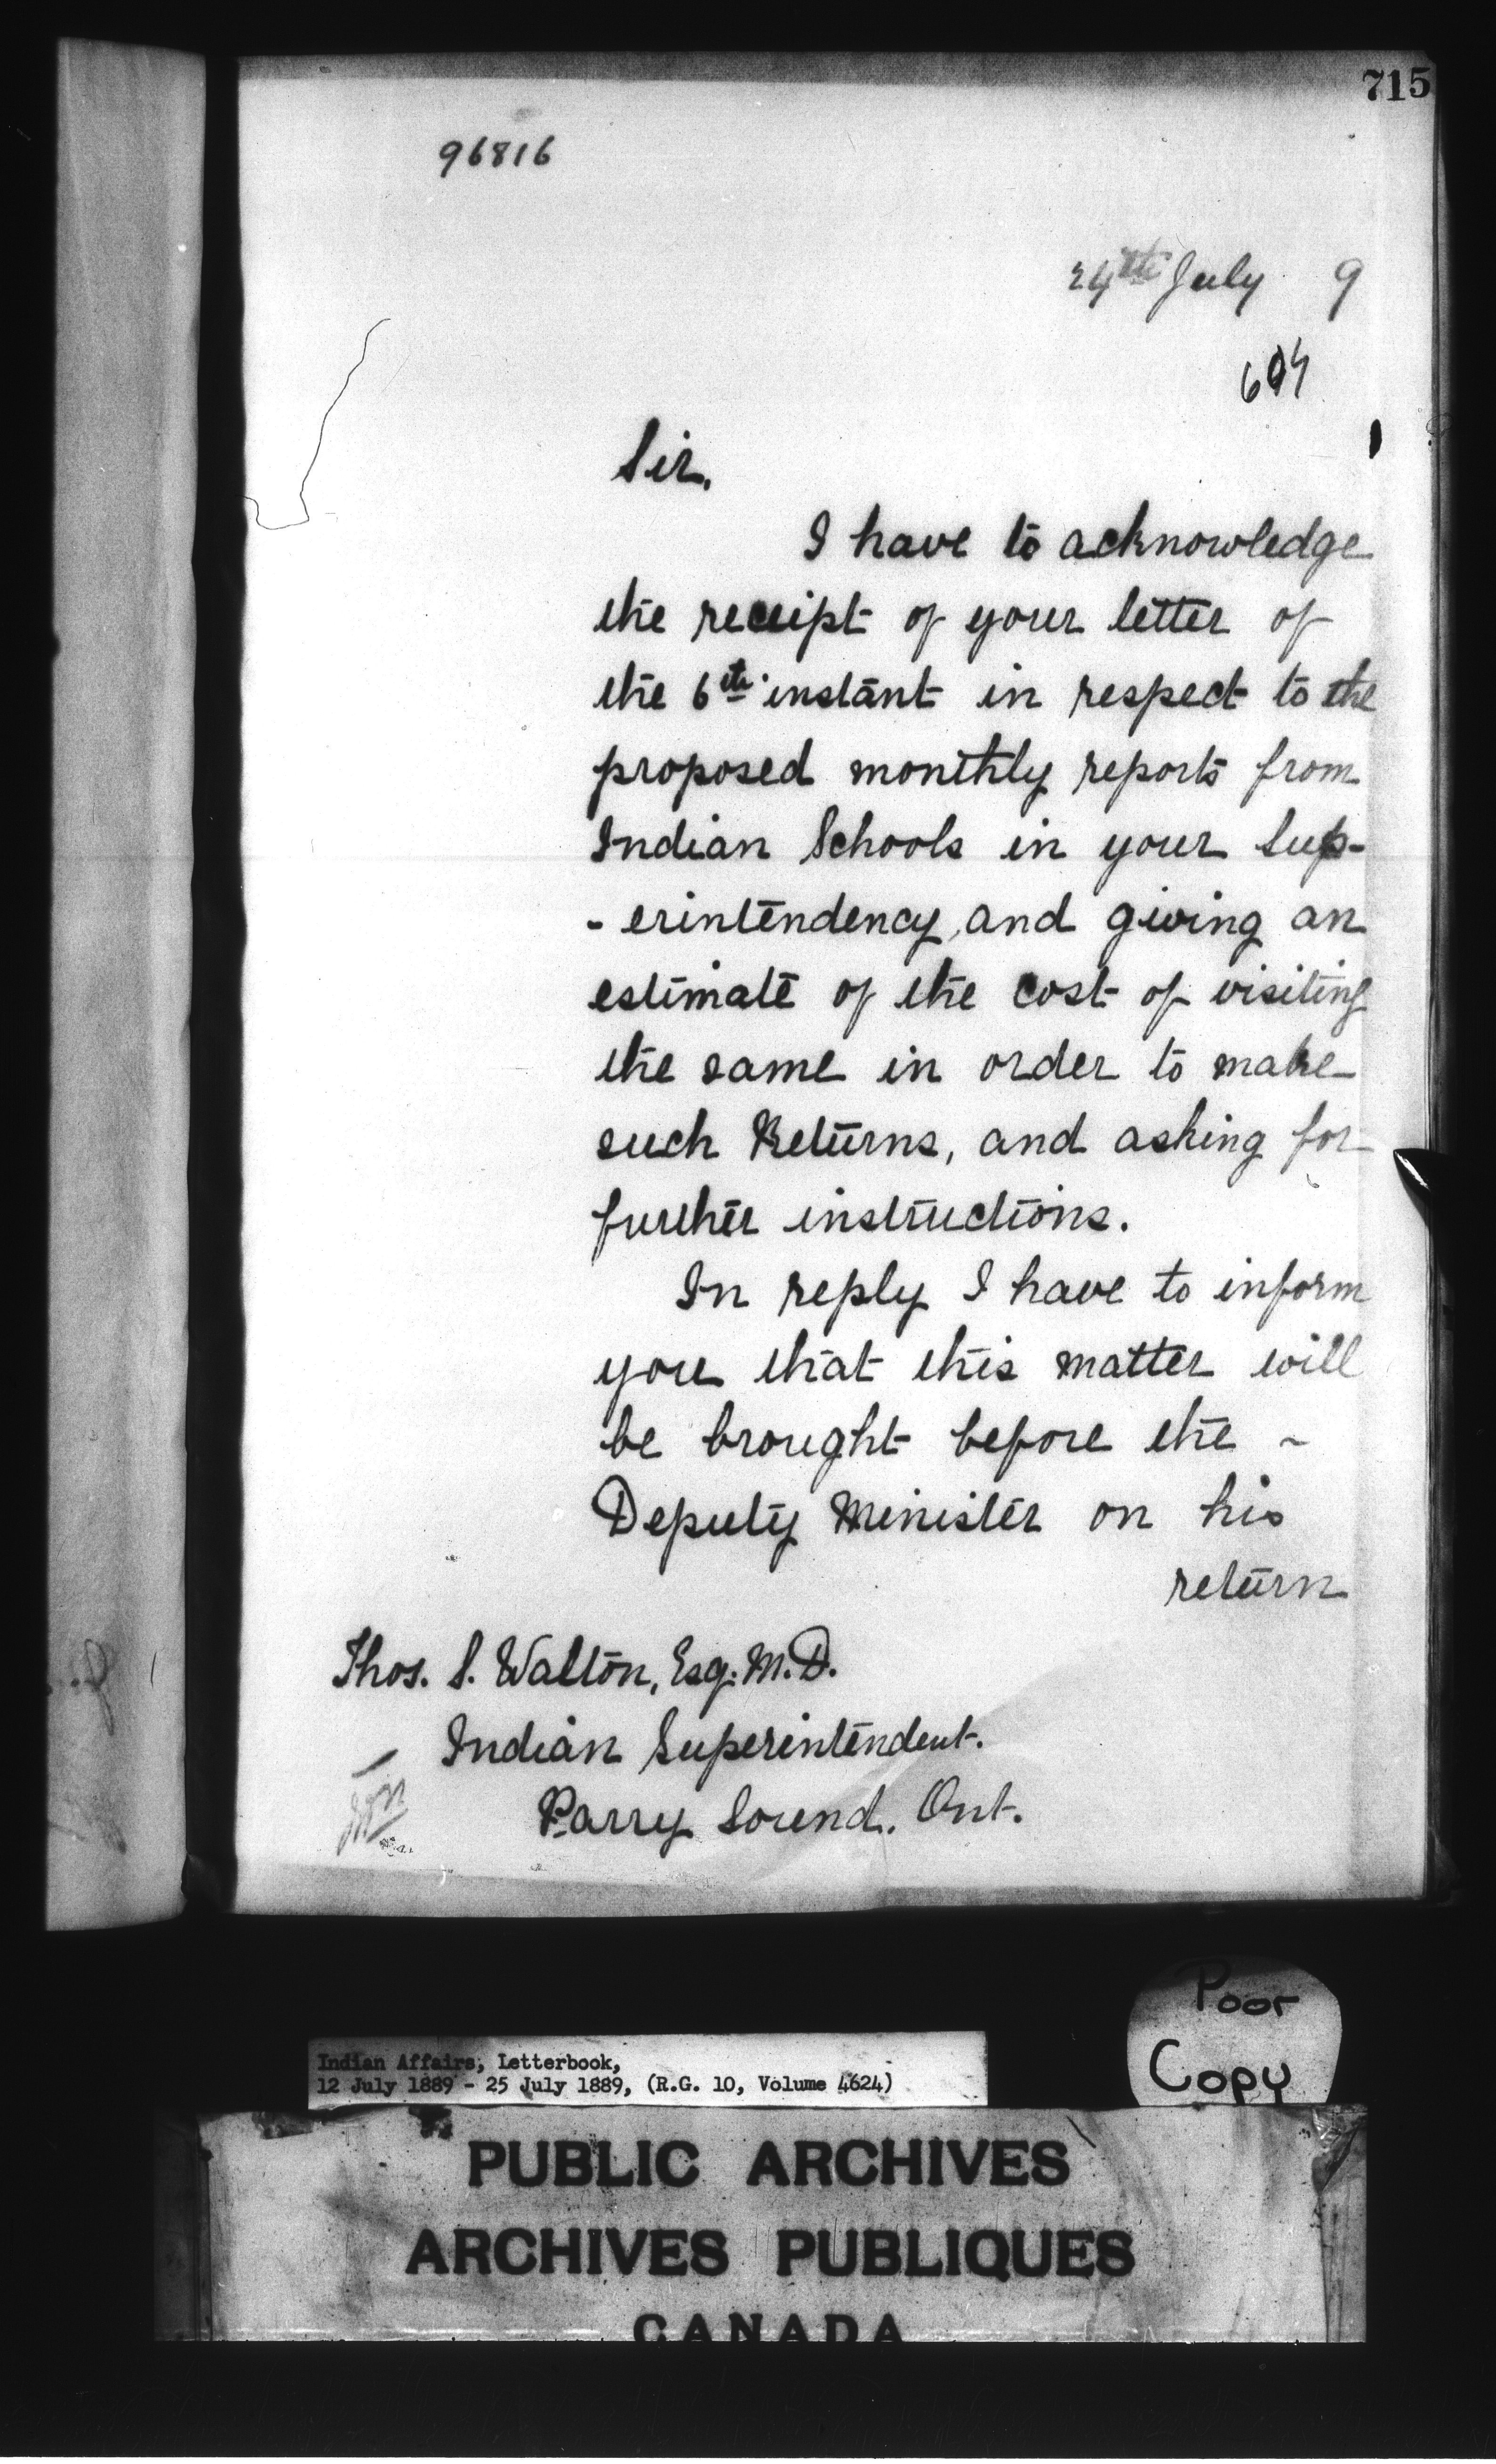 715
96816
24th July 9
Sir,
I have to acknowledge
the receipt of your letter of
the 6th instant in respect to the
proposed monthly reports from
Indian Schools in your Sup-
- erintendency, and giving an
estimate of the cost of visiting
the same in order to make
such Returns, and asking for
further instructions.
In reply I have to inform
you that this matter will
be brought before the ~
Deputy Minister on his
return
Thos. S. Walton, Esq. M.D.
Indian Superintendent.
Parry Sound. Ont.
Poor
Copy
Indian Affairs, Letterbook,
12 July 1889 - 25 July 1889, (R.G. 10, Volume 4624)
PUBLIC ARCHIVES
ARCHIVES PUBLIQUES
CANADA